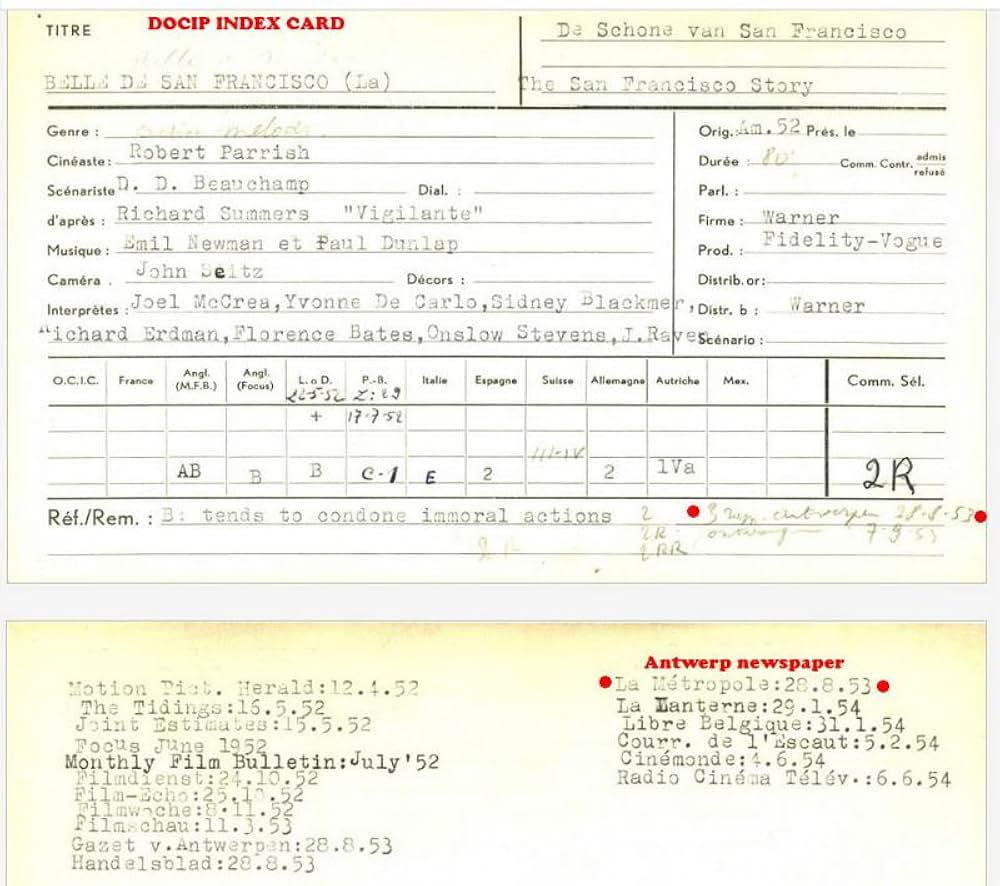 DOCIP INDEX CARD
TITRE
De Schone van San Francisco
BELLE DE SAN FRANCISCO (La)
The San Francisco Story
Genre :
Orig. Am. 52 Prés. le
Cinéaste: Robert Parrish
Durée : 80' Comm. Contr. admis
refusé
Scénariste D. D. Beauchamp Dial. :
Parl. :
d'après : Richard Summers "Vigilante"
Firme : Warner
Musique : Emil Newman et Paul Dunlap
Prod. : Fidelity-Vogue
Caméra . John Seitz Décors :
Distrib.or:
Interprètes : Joel McCrea,Yvonne De Carlo,Sidney Blackmer,
Distr. b : Warner
Richard Erdman,Florence Bates,Onslow Stevens,J.Raven
Scénario :
O.C.I.C. France Angl. (M.F.B.) Angl. (Focus) L.o D. P.-B. Italie Espagne Suisse Allemagne Autriche Mex. Comm. Sél.
22-5-52 Z:29
+ 17-7-52
III-IV
AB B B C-1 E 2 2 1Va 2R
Réf./Rem. : B: tends to condone immoral actions 2 antwerpen 28-8-53
2R
2RR
2 R
Antwerp newspaper
Motion Pict. Herald:12.4.52
The Tidings:16.5.52
Joint Estimates:15.5.52
Focus June 1952
Monthly Film Bulletin:July'52
Filmdienst:24.10.52
Film-Echo:25.10.52
Filmwoche:8.11.52
Filmschau:11.3.53
Gazet v.Antwerpen:28.8.53
Handelsblad:28.8.53
La Métropole:28.8.53
La Lanterne:29.1.54
Libre Belgique:31.1.54
Courr. de l'Escaut:5.2.54
Cinémonde:4.6.54
Radio Cinéma Télév.:6.6.54